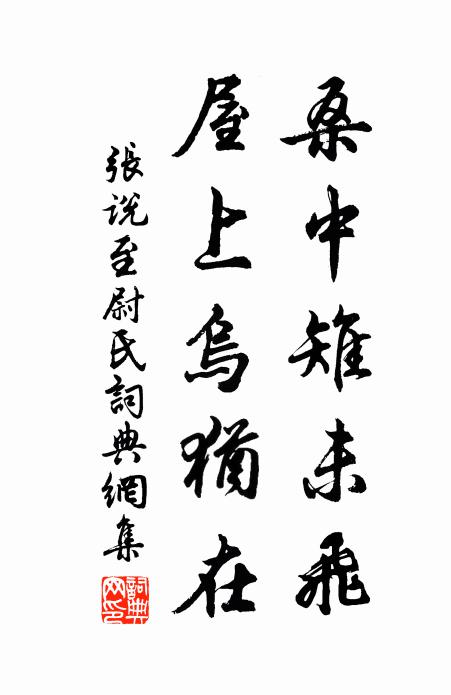 桑中雉未飛
屋上烏猶在
張说至尉氏詞典網集
詞典網印